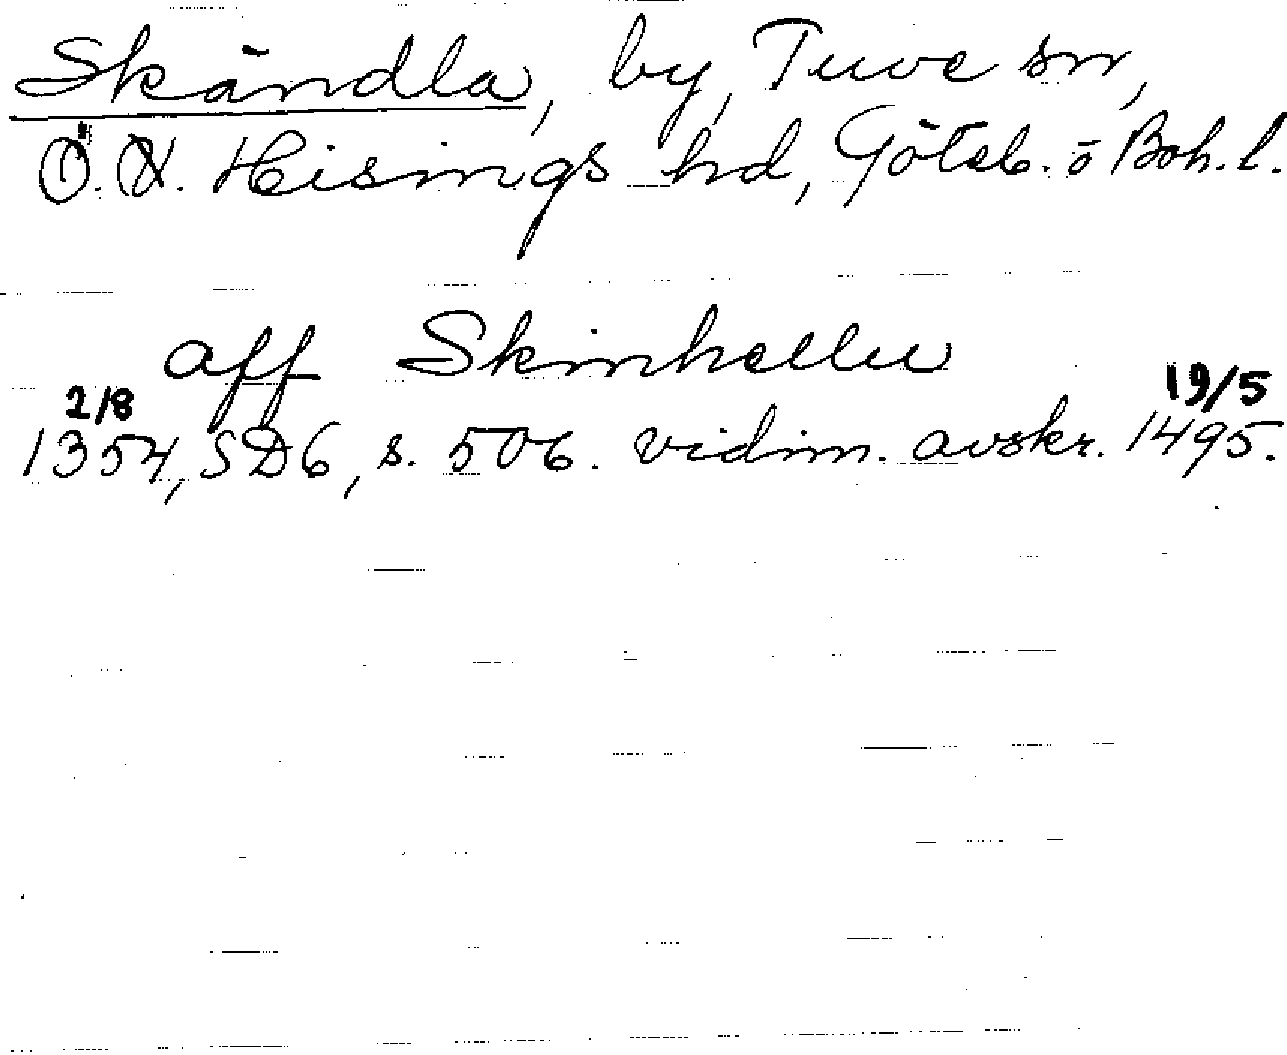 Skändla, by, Tuve sn,
Ö. Hisings hd, Göteb. o Boh. l.
aff Skinhellu
2/8 19/5
1354, SD6, s. 506. vidim. avskr. 1495.